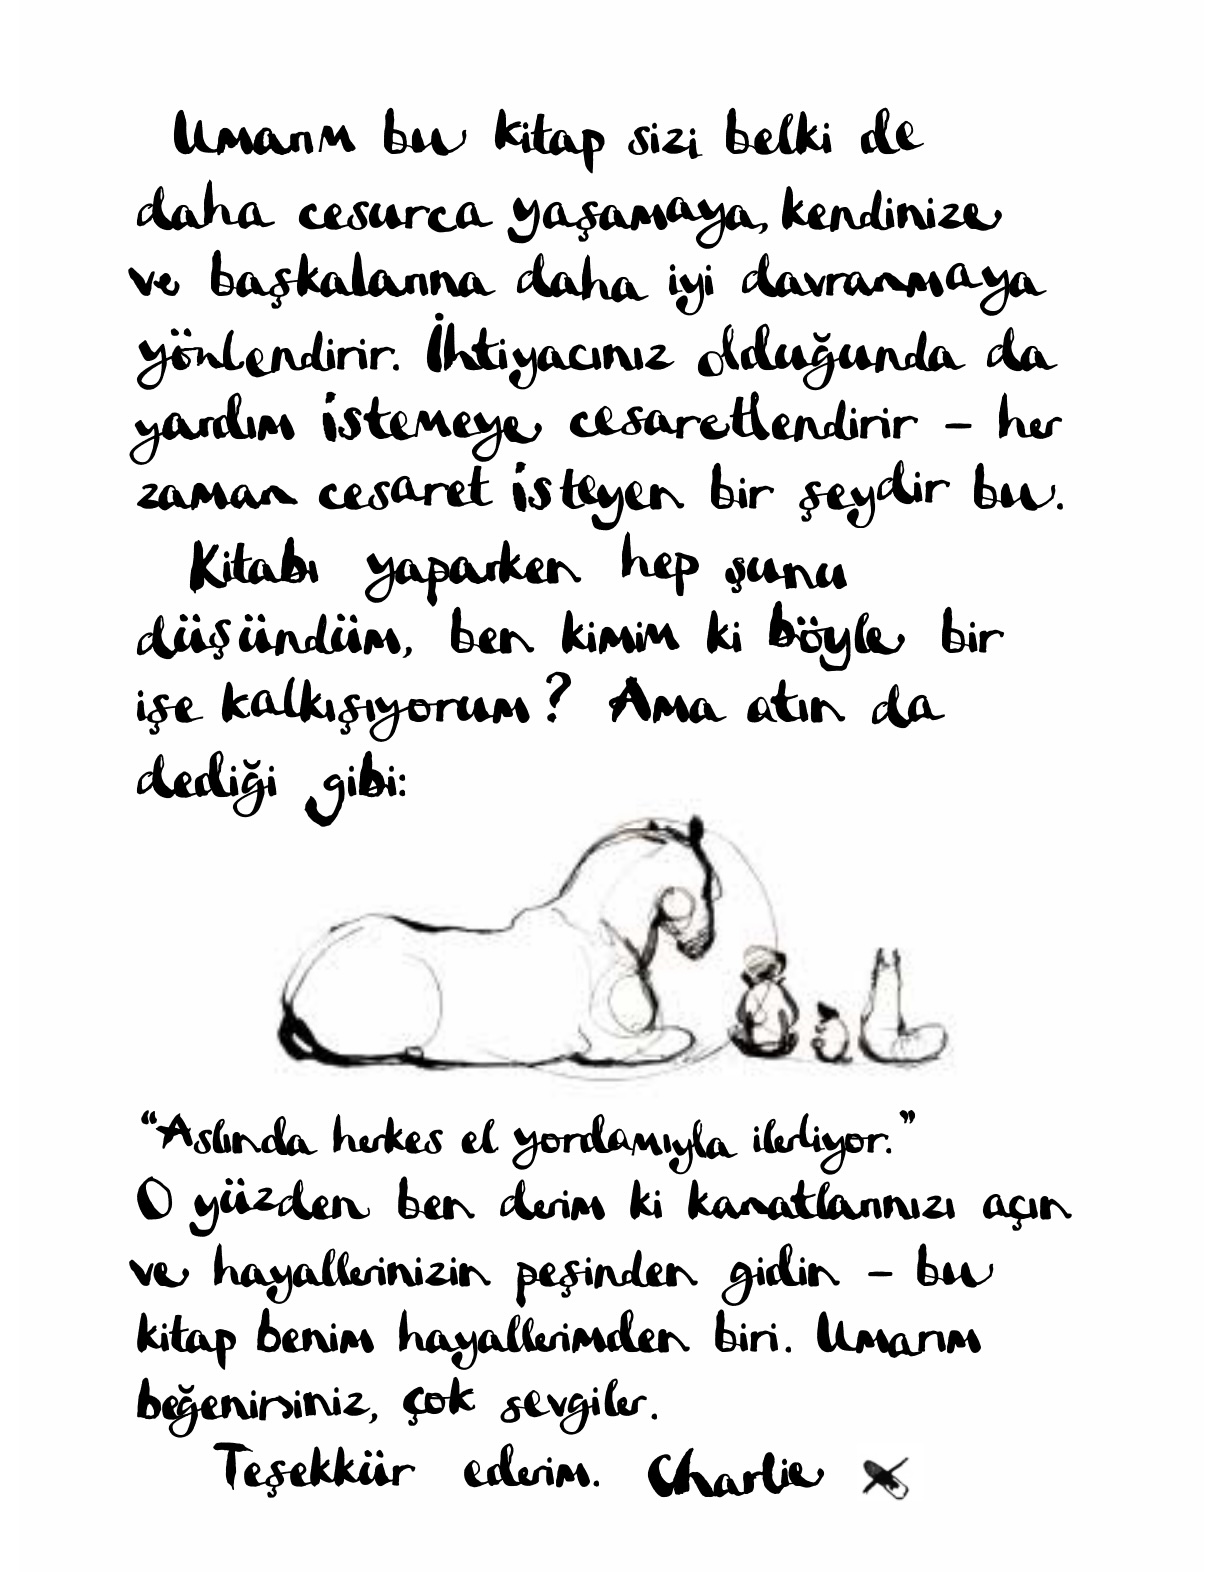 Umarım bu kitap sizi belki de
daha cesurca yaşamaya, kendinize
ve başkalarına daha iyi davranmaya
yönlendirir. İhtiyacınız olduğunda da
yardım istemeye cesaretlendirir – her
zaman cesaret isteyen bir şeydir bu.
Kitabı yaparken hep şunu
düşündüm, ben kimim ki böyle bir
işe kalkışıyorum? Ama atın da
dediği gibi:
“Aslında herkes el yordamıyla ilerliyor.”
O yüzden ben derim ki kanatlarınızı açın
ve hayallerinizin peşinden gidin – bu
kitap benim hayallerimden biri. Umarım
beğenirsiniz, çok sevgiler.
Teşekkür ederim. Charlie x